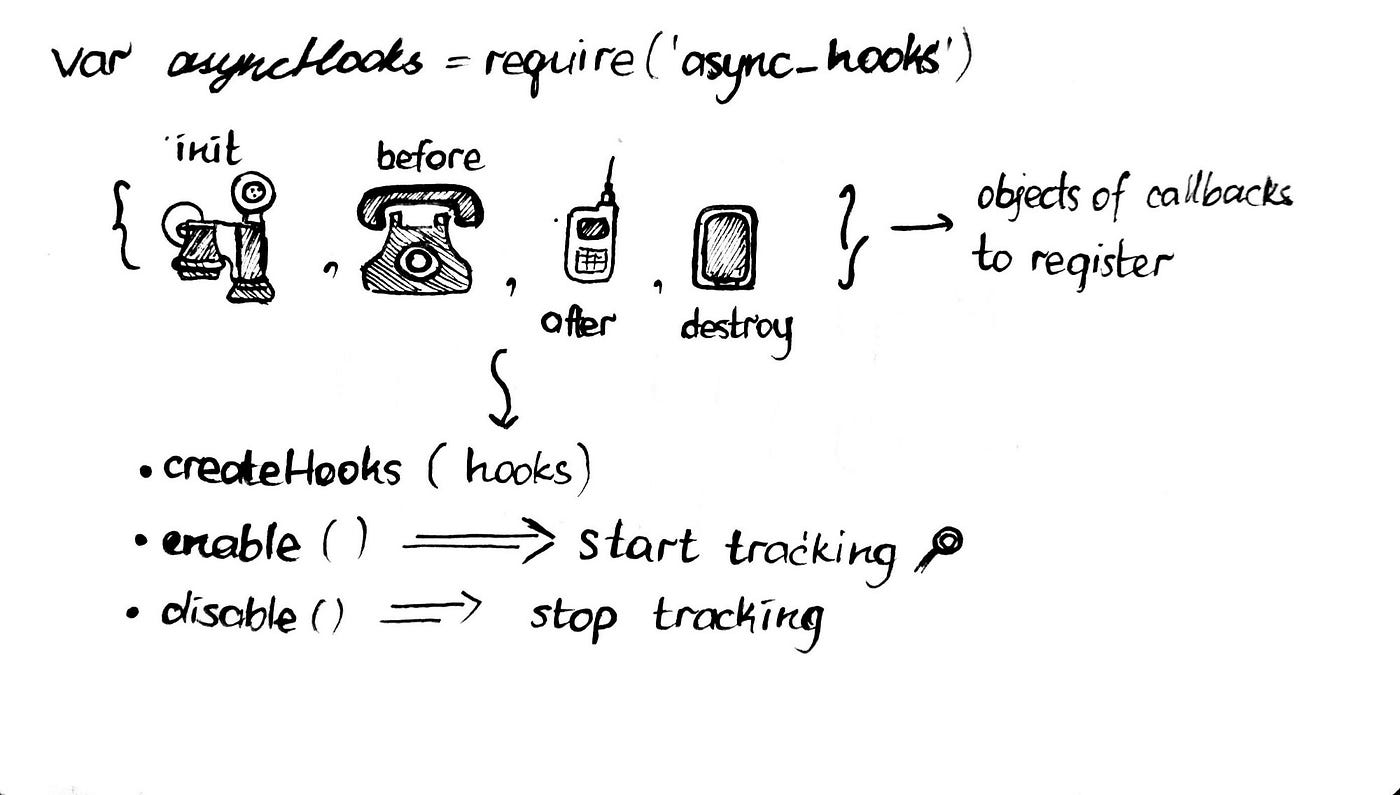 var asyncHooks = require('async_hooks')
init
before
{ , , , } → objects of callbacks
to register
after destroy
• createHooks ( hooks)
• enable ( ) ⟹ start tracking
• disable () ⟹ stop tracking